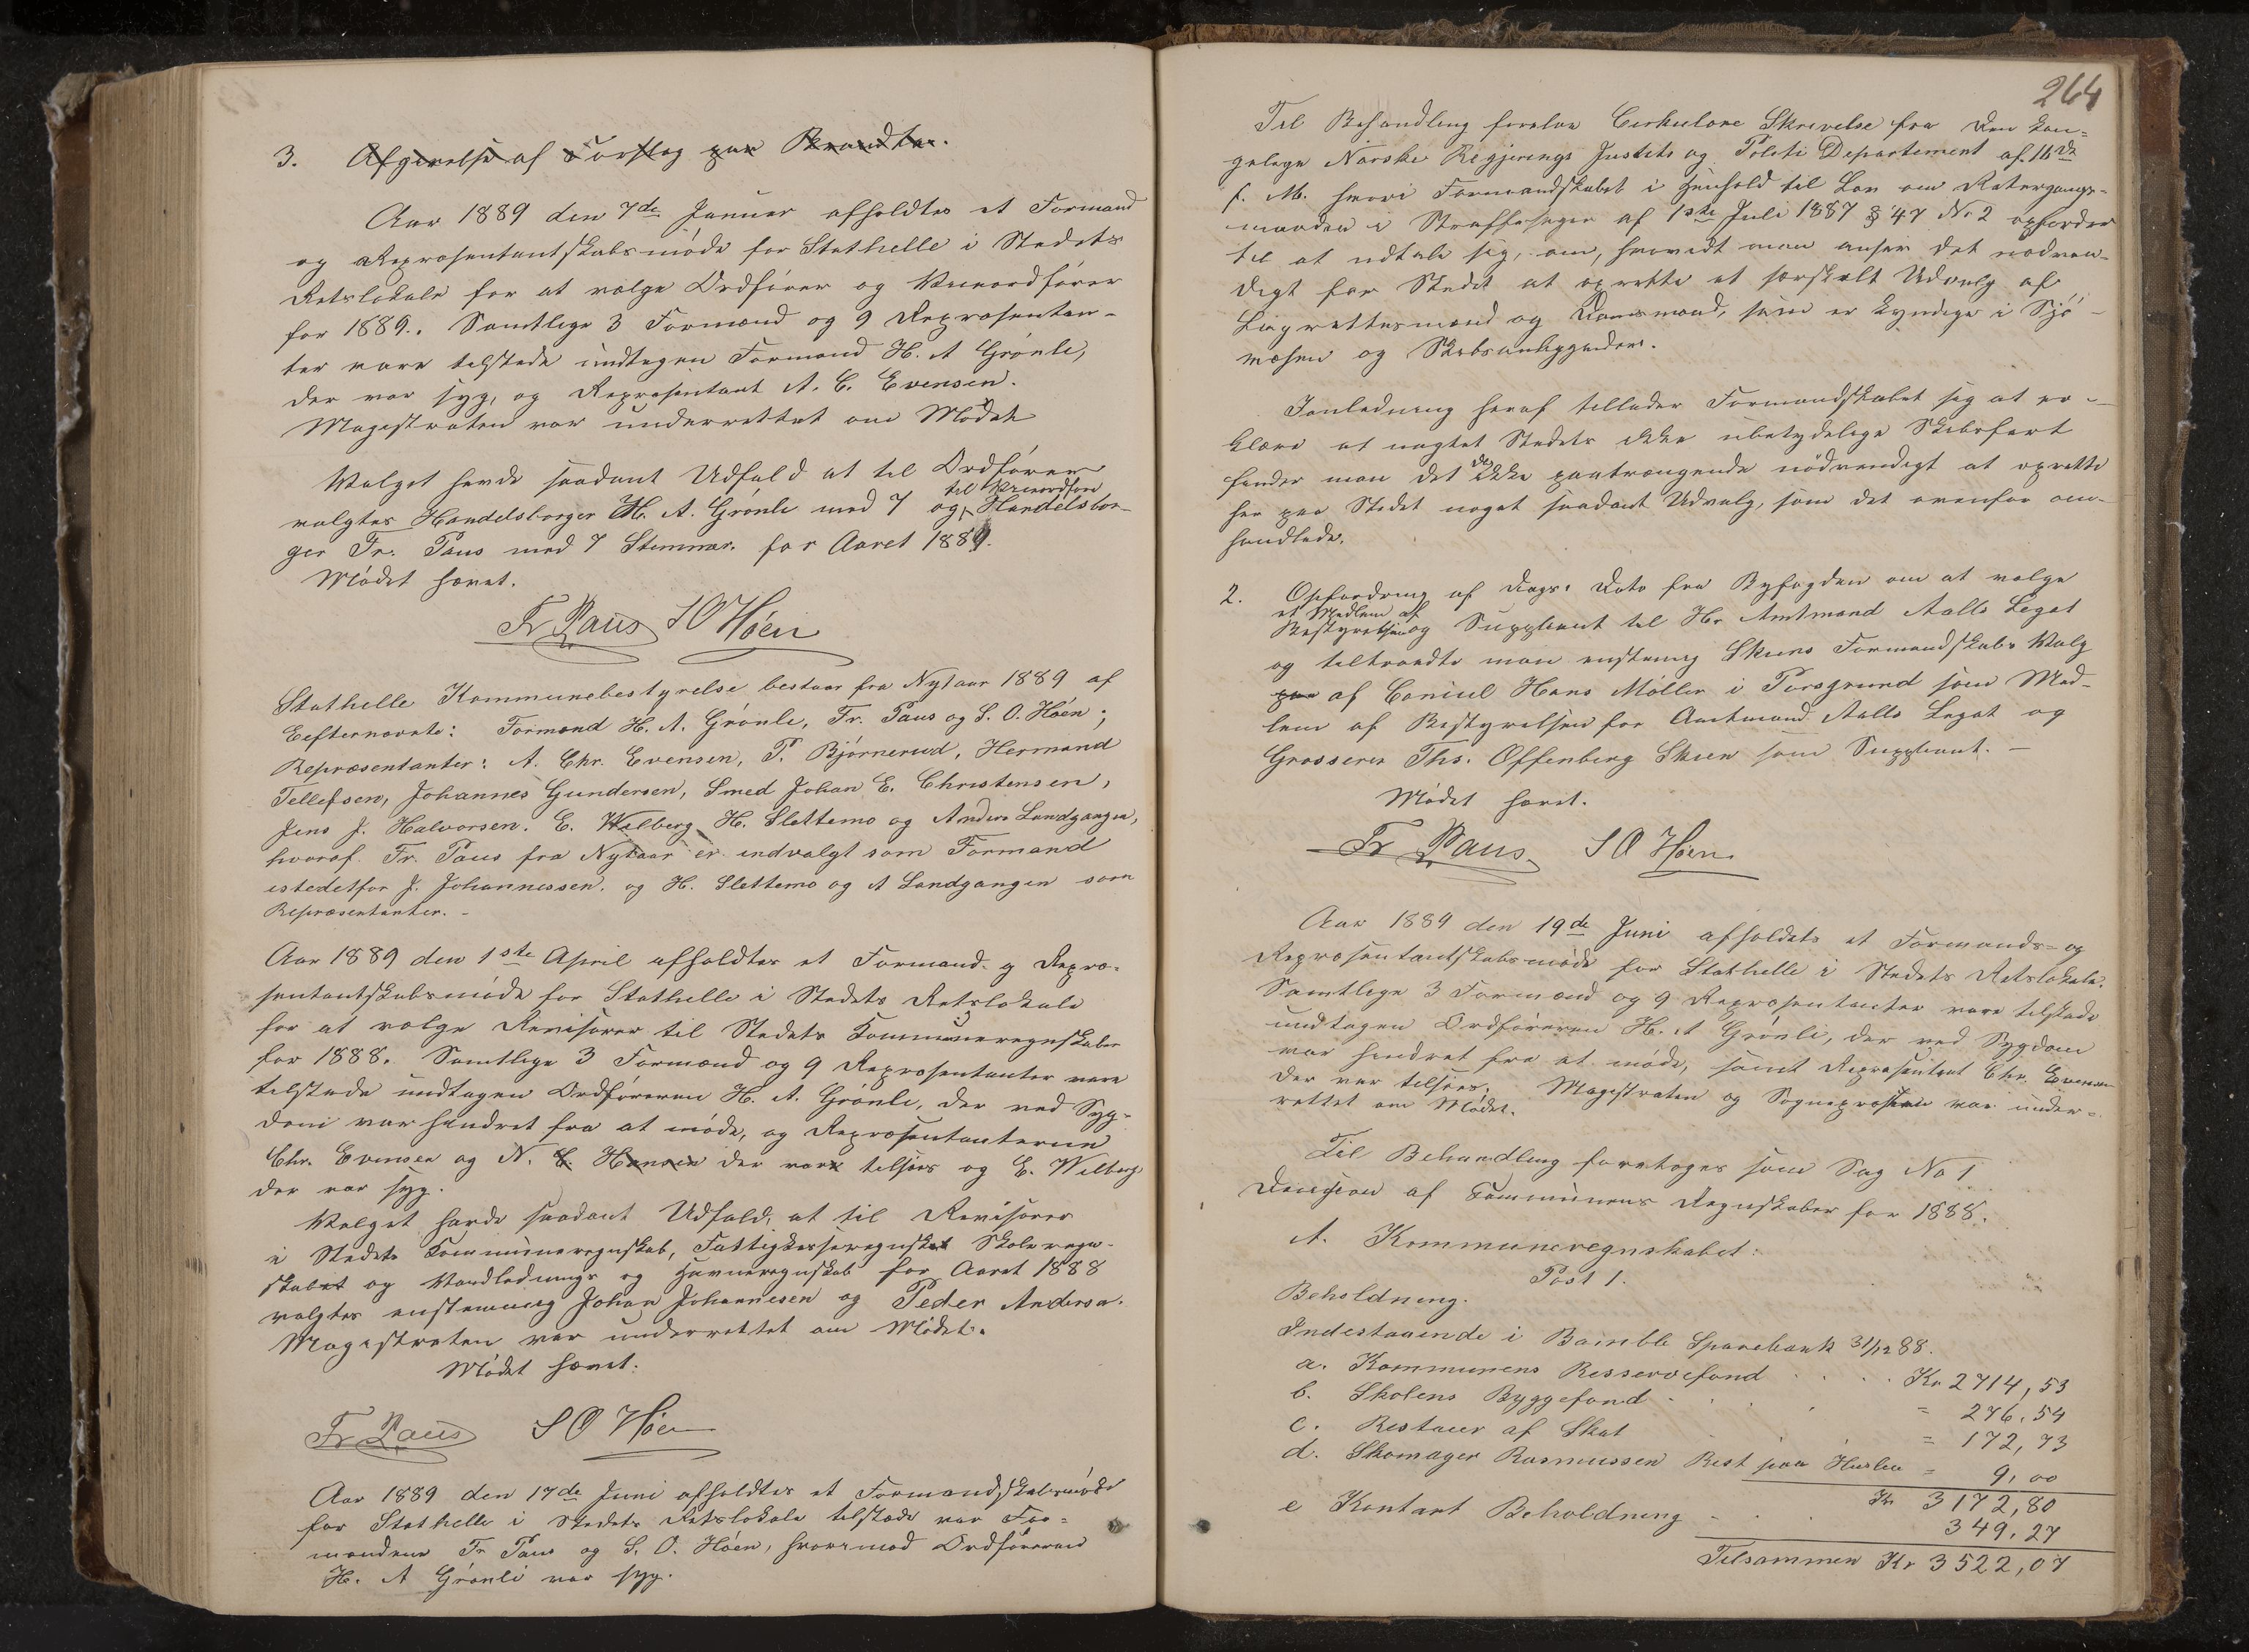 3. Afgivelse af Forslag paa Brandta.
Aar 1889 den 7de Januar afholdtes et Formand
og Repræsentantskabsmöde for Stathelle i Stedets
Retslokale for at vælge Ordförer og Viceordförer
for 1889. Samtlige 3 Formænd og 9 Repræsentan-
ter vare tilstede undtagen Formand H. A Grönli,
der var syg, og Repræsentant A. C. Evensen.
Magistraten var underrettet om Mödet
Valget havde saadant Udfald at til Ordförer
valgtes Handelsborger H. A. Grönli med 7 og til Viceordförer Handelsbor-
ger Fr. Paus med 7 Stemmer. for Aaret 1889.
Mödet hævet.
Fr Paus S O Höen
Stathelle Kommunebestyrelse bestaar fra Nytaar 1889 af
Eefternævnte: Formænd H. A. Grönli, Fr. Paus og S. O. Höen;
Repræsentanter: A. Chr. Evensen, P. Björnerud, Hermand
Tellefsen, Johannes Gundersen, Smed Johan E. Christensen,
Jens J. Halvorsen. E. Welberg H. Slettemo og Anders Landgangen,
hvoraf Fr. Paus fra Nytaar er indvalgt som Formand
istedetfor J. Johannessen. og H. Slettemo og A Landgangen som
Repræsentanter. -
Aar 1889 den 1ste April afholdtes et Formand- og Repræ-
sentantskabsmöde for Stathelle i Stedets Retslokale
for at vælge Revisorer til Stedets Kommuneregnskaber
for 1888. Samtlige 3 Formænd og 9 Repræsentanter vare
tilstede undtagen Ordföreren H. A. Grönli, der ved Syg-
dom var hindret fra at möde, og Repræsentanterne
Chr. Evensen og N. C. Hansen der vare tilsjös og E. Welberg
der var syg.
Valget havde saadant Udfald, at til Revisorer
i Stedets Kommuneregnskab, Fattigkasseregnskab Skoleregn-
skabet og Vandlednings og Havneregnskab for Aaret 1888
valgtes enstemmig Johan Johannesen og Peder Andersen.
Magistraten var underrettet om Mödet.
Mödet hævet.
Fr Paus S O Höen
Aar 1889 den 17de Juni afholdtes et Formandskabsmöde
for Stathelle i Stedets Retslokale tilstede var For-
mændene Fr Paus og S. O. Höen, hvorimod Ordföreren
H. A Grönli var syg.
264
Til Behandling forelaa Cirkulære Skrivelse fra den kon-
gelige Norske Regjerings Justits og Politi Departement af 11de
f. M. hvori Formandskabet i Henhold til Lov om Rettergangs-
maaden i Straffesager af 1ste Juli 1887 § 47 No 2 opfordres
til at udtale sig, om, hvorvidt man anser det nödven-
digt for Stedet at oprette et særskilt Udvalg af
Lagrettesmænd og Domsmænd, som er kyndige i Sjö-
væsen og Skibsanliggender.
I Anledning heraf tillader Formandskabet sig at er-
klære at uagtet Stedets ikke ubetydelige Skibsfart
finder man det dog ikke paatrængende nödvendigt at oprette
her paa Stedet noget saadant Udvalg, som det ovenfor om-
handlede.
2. Opfordring af Dags Dato fra Byfogden om at vælge
et Medlem af
Bestyrelsen og Suppleant til Hr Amtmand Aalls Legat
og tiltraadte man enstemmig Skiens Formandskabs Valg
paa af Consul Hans Möller i Porsgrund som Med-
lem af Bestyrelsen for Amtmand Aalls Legat og
Grosserer Ths. Offenberg Skien som Suppleant. -
Mödet hævet.
Fr Paus S O Höen
Aar 1889 den 19de Juni afholdtes et Formands- og
Repræsentantskabsmöde for Stathelle i Stedets Retslokale.
Samtlige 3 Formænd og 9 Repræsentanter vare tilstede
undtagen Ordföreren H. A Grönli, der ved Sygdom
var hindret fra at möde, samt Repræsentant Chr. Evensen
der var tilsjös. Magistraten og Sognepræsten var under-
rettet om Mödet.
Til Behandling foretoges som Sag No 1.
Decision af Kommunens Regnskaber for 1888.
A. Kommuneregnskabet:
Post 1.
Beholdning.
Indestaaende i Bamble Sparebank 31/12 88.
a. Kommunens Resservefond . . . . Kr 2714,53
b. Skolens Byggefond . . . . = 276.54
c. Restaner af Skat = 172,73
d. Skomager Rasmussen Rest paa Husleie = 9,00
Kr 3172,80
e Kontant Beholdning . . . 349.27
Tilsammen Kr 3522,07